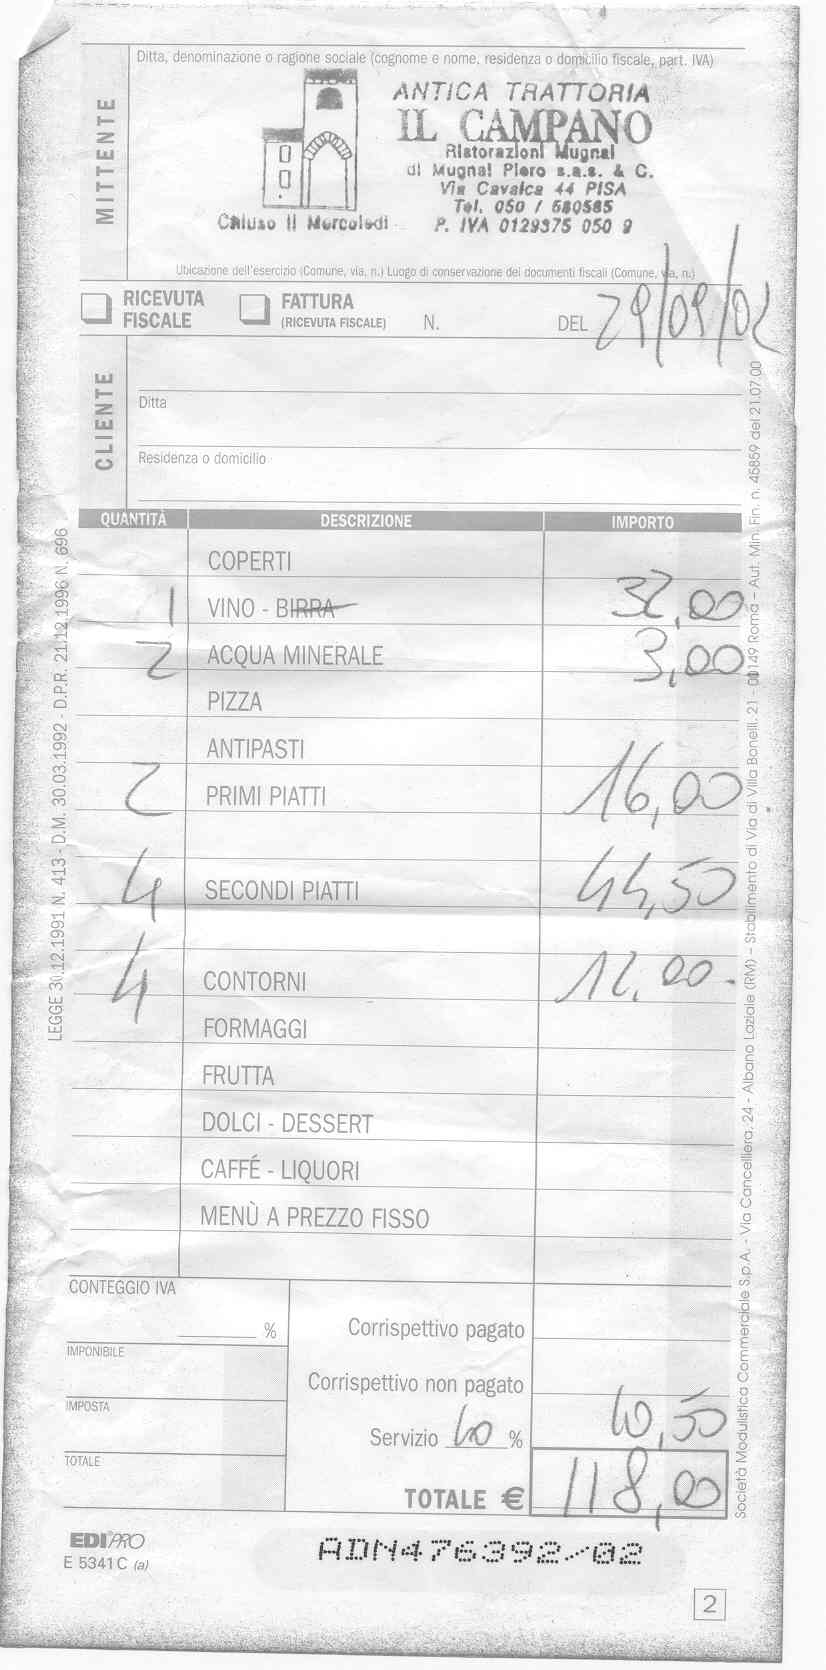 Ditta, denominazione o ragione sociale (cognome e nome, residenza o domicilio fiscale, part. IVA)
MITTENTE
ANTICA TRATTORIA
IL CAMPANO
Ristorazioni Mugnai
di Mugnai Piero s.a.s. & C.
Via Cavalca 44 PISA
Tel. 050 / 580585
Chiuso il Mercoledi
P. IVA 0129375 050 9
Ubicazione dell'esercizio (Comune, via, n.) Luogo di conservazione dei documenti fiscali (Comune, via, n.)
RICEVUTA FISCALE
FATTURA (RICEVUTA FISCALE)
N.
DEL 29/09/02
CLIENTE
Ditta
Residenza o domicilio
QUANTITÀ DESCRIZIONE IMPORTO
COPERTI
1 VINO - BIRRA 32,00
2 ACQUA MINERALE 3,00
PIZZA
ANTIPASTI
2 PRIMI PIATTI 16,00
4 SECONDI PIATTI 44,50
4 CONTORNI 12,00
FORMAGGI
FRUTTA
DOLCI - DESSERT
CAFFÉ - LIQUORI
MENÙ A PREZZO FISSO
CONTEGGIO IVA
%
IMPONIBILE
IMPOSTA
TOTALE
Corrispettivo pagato
Corrispettivo non pagato
Servizio 10 % 10,50
TOTALE € 118,00
LEGGE 30.12.1991 N. 413 - D.M. 30.03.1992 - D.P.R. 21.12.1996 N. 696
Società Modulistica Commerciale S.p.A. - Via Cancelliera, 24 - Albano Laziale (RM) – Stabilimento di Via di Villa Bonelli, 21 - 00149 Roma – Aut. Min. Fin. n. 45859 del 21.07.00
EDIPRO
E 5341C (a)
ADN476392/02
2